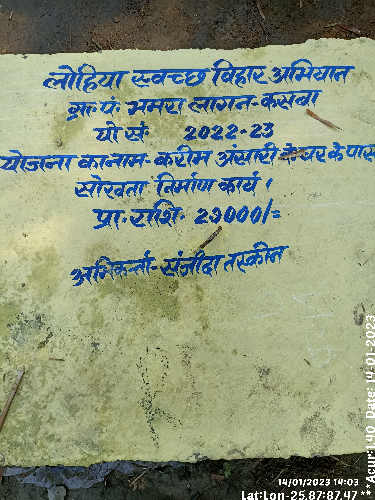 लोहिया स्वच्छ विहार अभियान
ग्रा. पं. भमरा लागन-कसवा
यो सं. 2022-23
योजना का नाम- करीम अंसारी के घर के पास
सोखता निर्माण कार्य।
प्रा. राशि- 29000/=
अभिकर्त्ता- संजीदा तस्कीन
14/01/2023 14:03
Lat:Lon-25.87:87.47
**Acur:1.40 Date: 14-01-2023